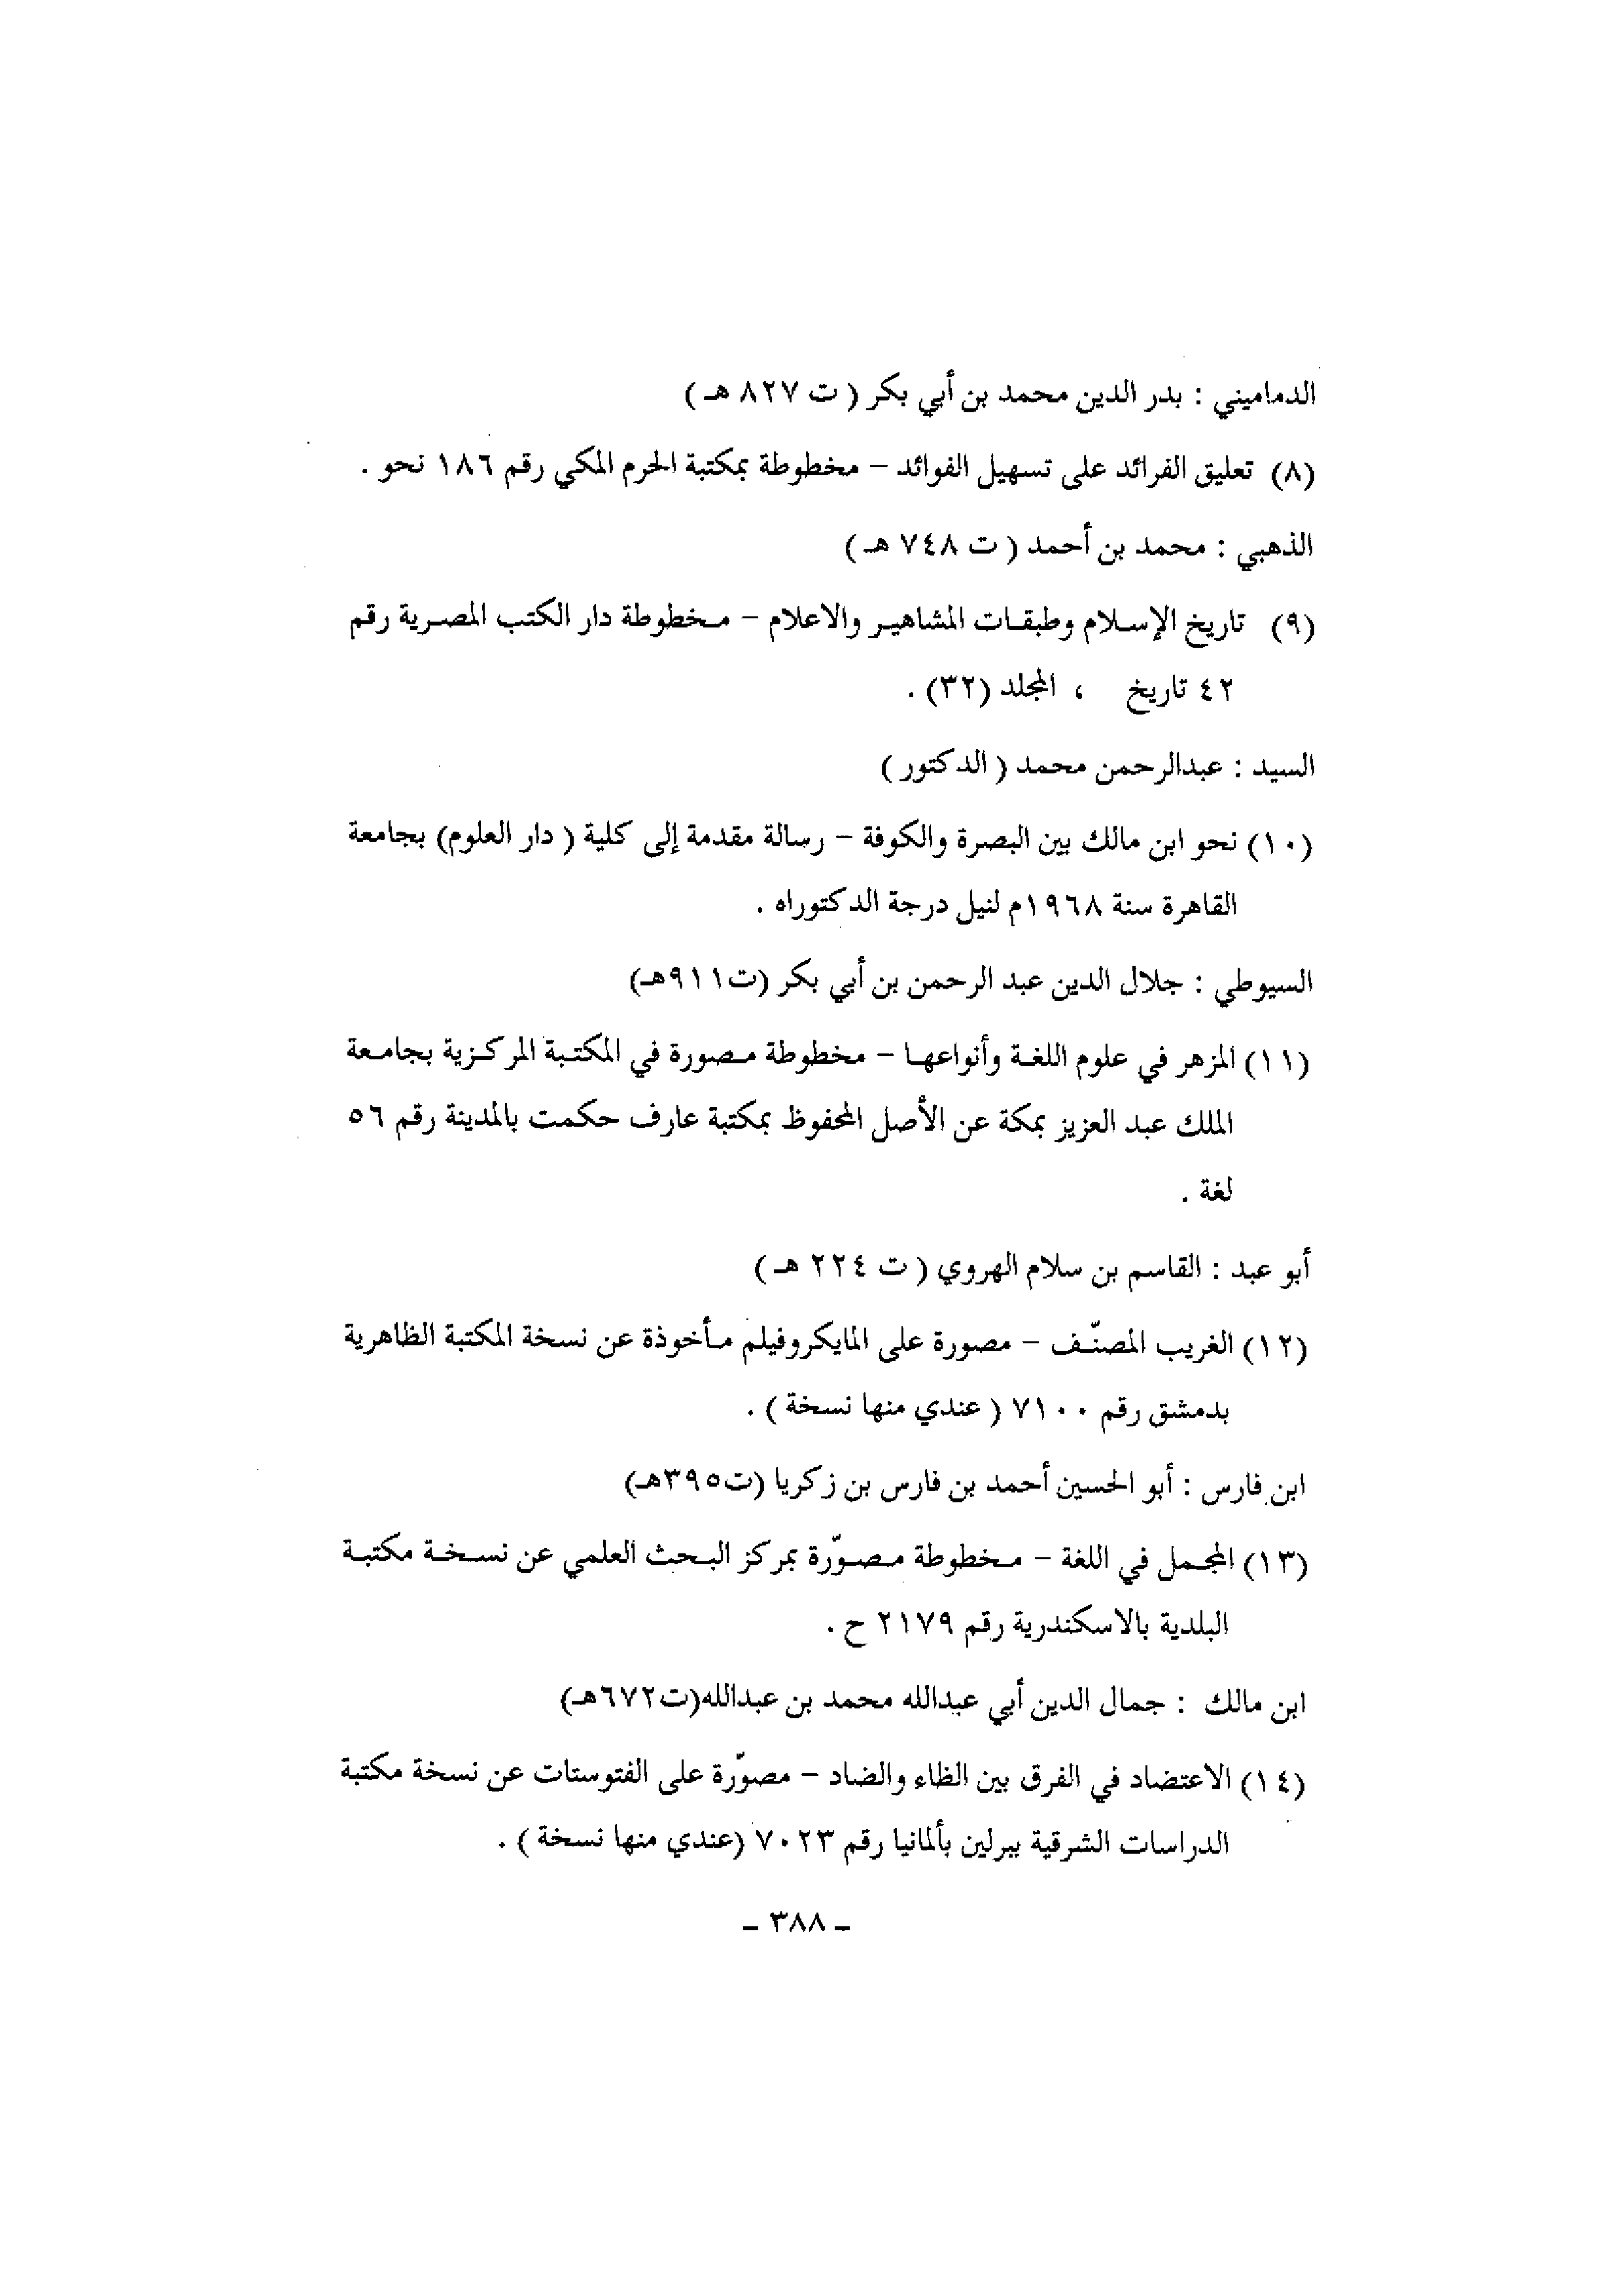 الدماميني : بدر الدين محمد بن أبي بكر ( ت ٨٢٧ هـ )
(٨) تعليق الفرائد على تسهيل الفوائد – مخطوطة بمكتبة الحرم المكي رقم ١٨٦ نحو .
الذهبي : محمد بن أحمد ( ت ٧٤٨ هـ )
(٩) تاريخ الإسلام وطبقات المشاهير والاعلام – مخطوطة دار الكتب المصرية رقم
٤٢ تاريخ ، المجلد (٣٢) .
السيد : عبدالرحمن محمد ( الدكتور )
(١٠) نحو ابن مالك بين البصرة والكوفة – رسالة مقدمة إلى كلية ( دار العلوم) بجامعة
القاهرة سنة ١٩٦٨م لنيل درجة الدكتوراه .
السيوطي : جلال الدين عبد الرحمن بن أبي بكر (ت٩١١هـ)
(١١) المزهر في علوم اللغة وأنواعها – مخطوطة مصورة في المكتبة المركزية بجامعة
الملك عبد العزيز بمكة عن الأصل المحفوظ بمكتبة عارف حكمت بالمدينة رقم ٥٦
لغة .
أبو عبد : القاسم بن سلام الهروي ( ت ٢٢٤ هـ )
(١٢) الغريب المصنّف – مصورة على المايكروفيلم مأخوذة عن نسخة المكتبة الظاهرية
بدمشق رقم ٧١٠٠ ( عندي منها نسخة ) .
ابن فارس : أبو الحسين أحمد بن فارس بن زكريا (ت٣٩٥هـ)
(١٣) المجمل في اللغة – مخطوطة مصوّرة بمركز البحث العلمي عن نسخة مكتبة
البلدية بالاسكندرية رقم ٢١٧٩ ح .
ابن مالك : جمال الدين أبي عبدالله محمد بن عبدالله(ت٦٧٢هـ)
(١٤) الاعتضاد في الفرق بين الظاء والضاد – مصوّرة على الفتوستات عن نسخة مكتبة
الدراسات الشرقية ببرلين بألمانيا رقم ٧٠٢٣ (عندي منها نسخة ) .
– ٣٨٨ –